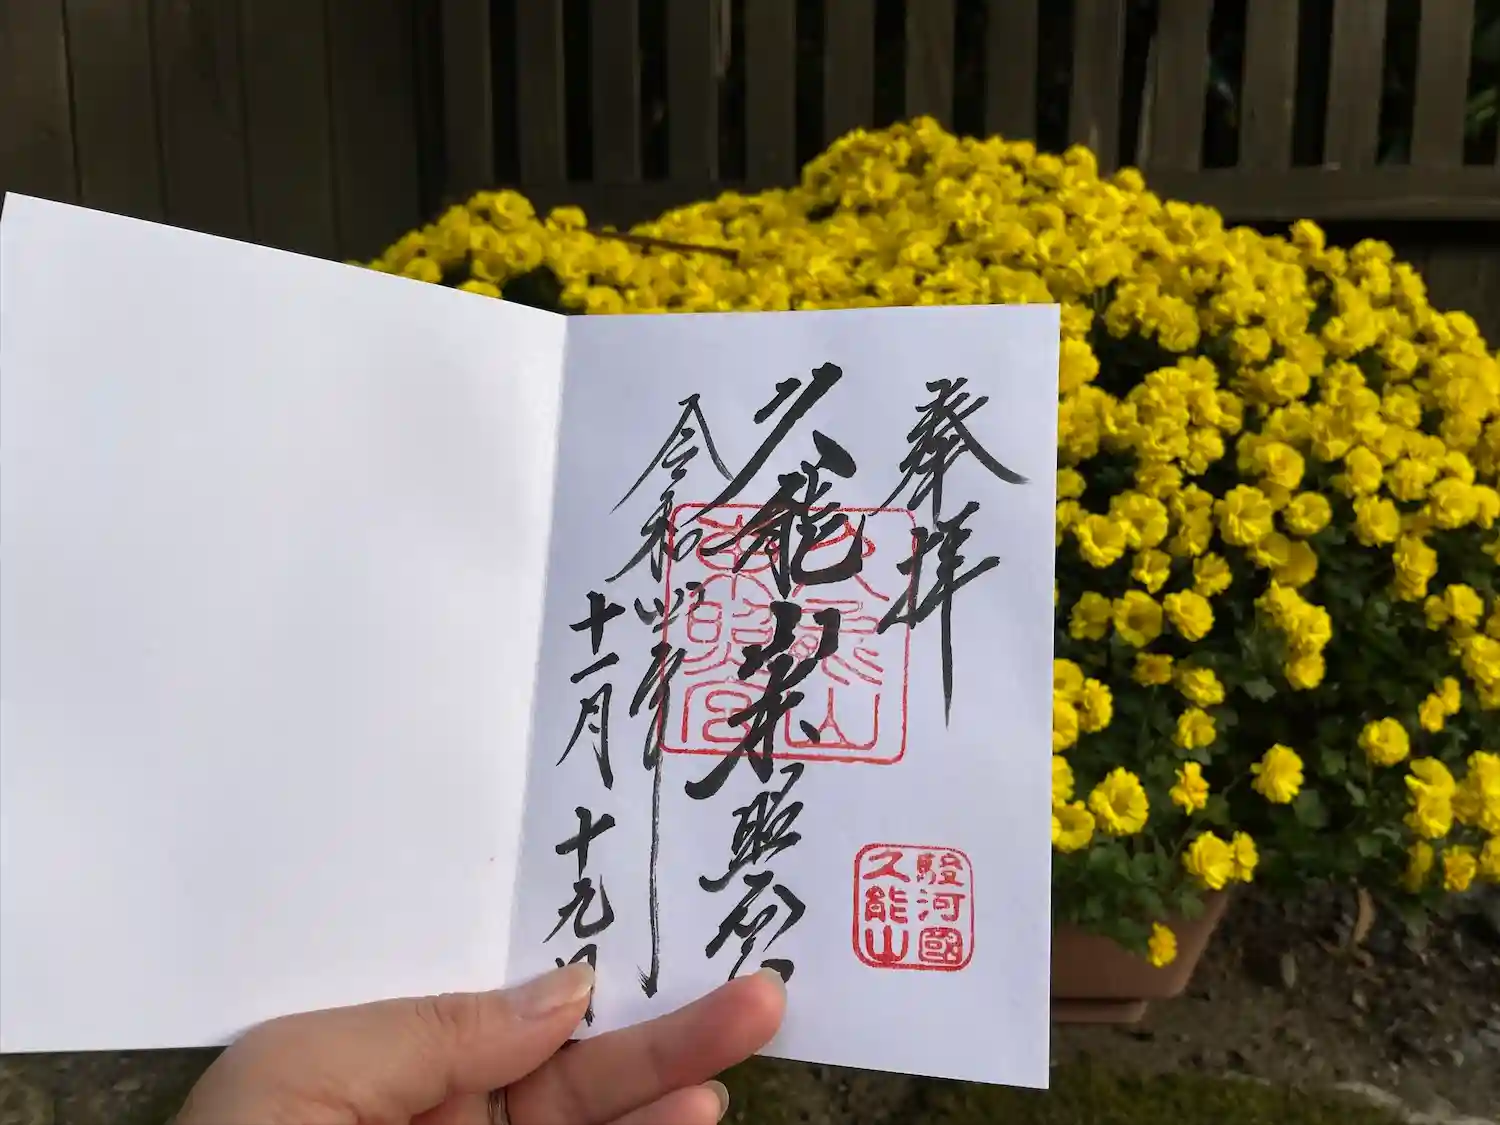 奉拝
駿河國
久能山
久能山東照宮
久能山
東照宮
令和四年
十一月十九日